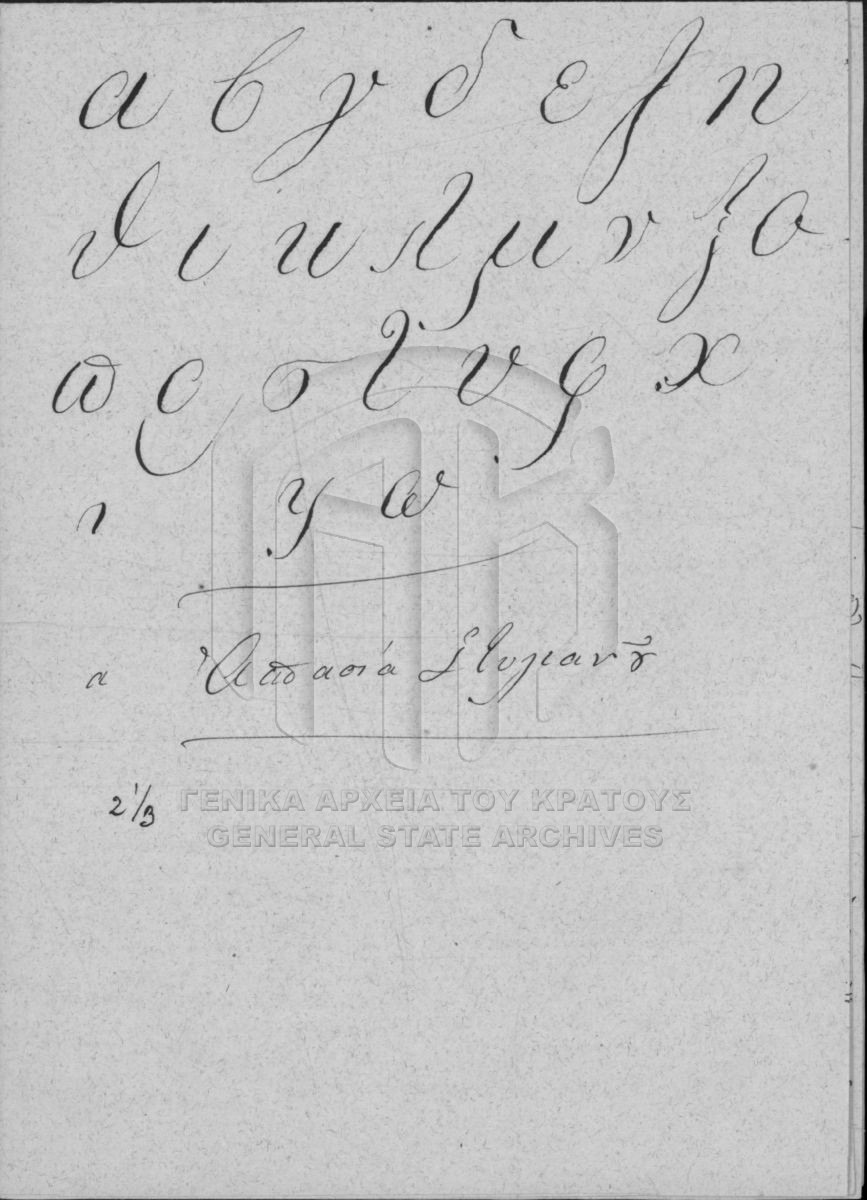 α β γ δ ε ζ η
θ ι κ λ μ ν ξ ο
π ρ σ τ υ φ χ
ι ψ ω
α Ἀσπασία Στυλιανοῦ
2 1/3
ΓΕΝΙΚΑ ΑΡΧΕΙΑ ΤΟΥ ΚΡΑΤΟΥΣ
GENERAL STATE ARCHIVES